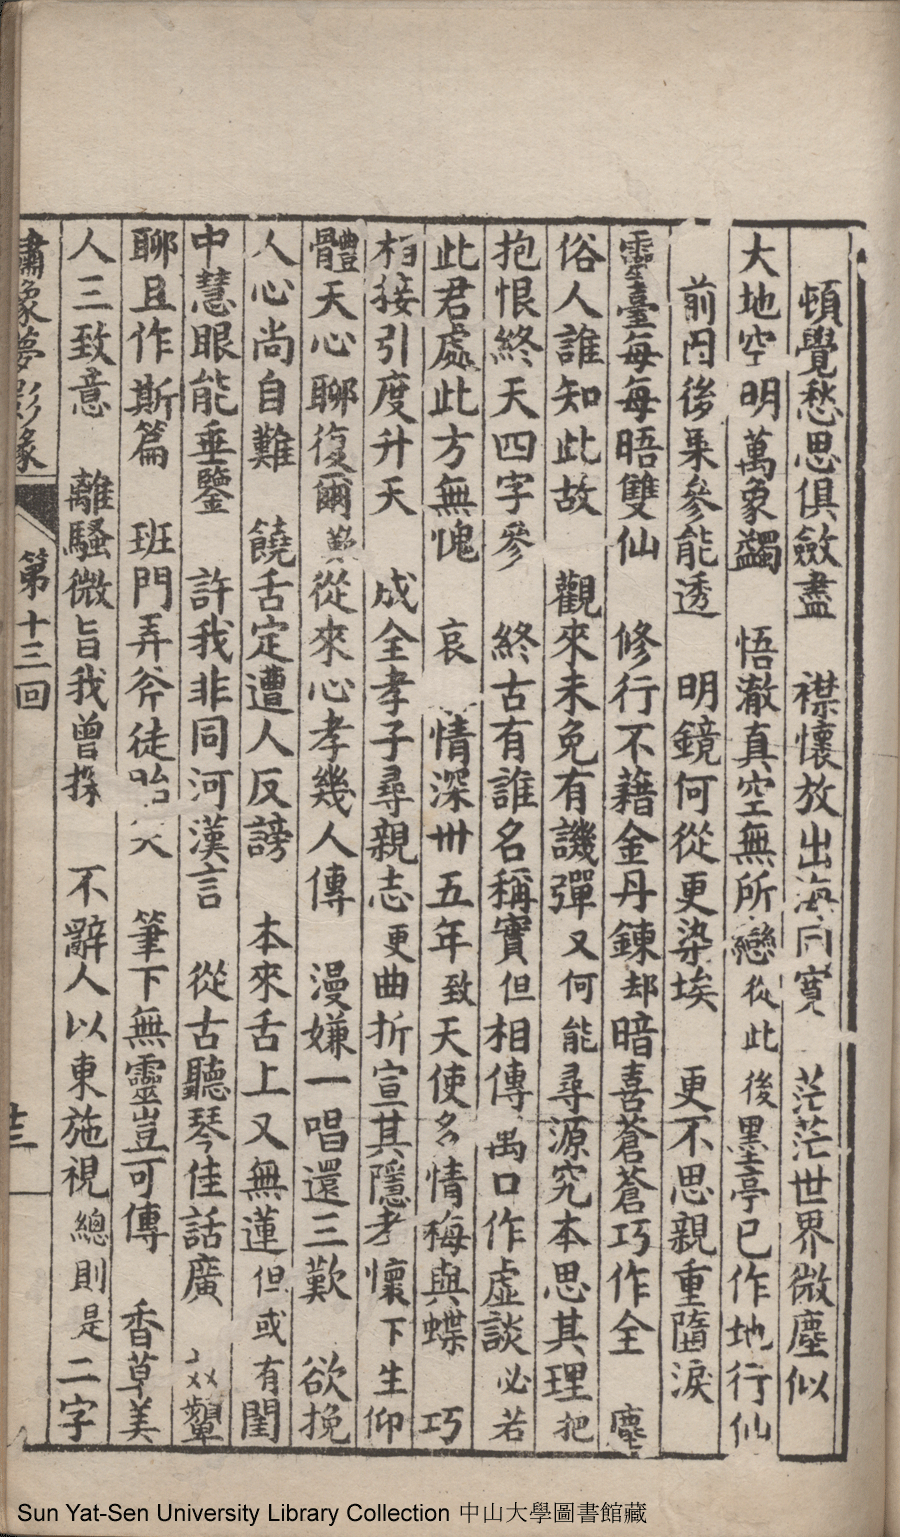 頓覺愁思俱斂盡　襟懷放出海同寬　茫茫世界微塵似
大地空明萬象蠲　悟澈真空無所戀從此後墨亭已作地行仙
前因後果參能透　明鏡何從更染埃　更不思親重墮淚
靈臺每每晤雙仙　修行不藉金丹鍊却暗喜蒼蒼巧作全　塵
俗人誰知此故　觀來未免有譏彈又何能尋源究本思其理把
抱恨終天四字參　終古有誰名稱實但相傳萬口作虛談必若
此君處此方無愧　哀情深卅五年致天使多情梅與蝶　巧
相接引度升天　成全孝子尋親志更曲折宣其隱孝懷下生仰
體天心聊復爾歎從來心孝幾人傳　漫嫌一唱還三歎　欲挽
人心尚自難　饒舌定遭人反謗　本來舌上又無蓮但或有閨
中慧眼能垂鑒　許我非同河漢言　從古聽琴佳話廣　效顰
聊且作斯篇　班門弄斧徒貽笑　筆下無靈豈可傳　香草美
人三致意　離騷微旨我曾探　不辭人以東施視總則是二字
瀟象夢影緣　第十三回　十三
Sun Yat-Sen University Library Collection 中山大學圖書館藏